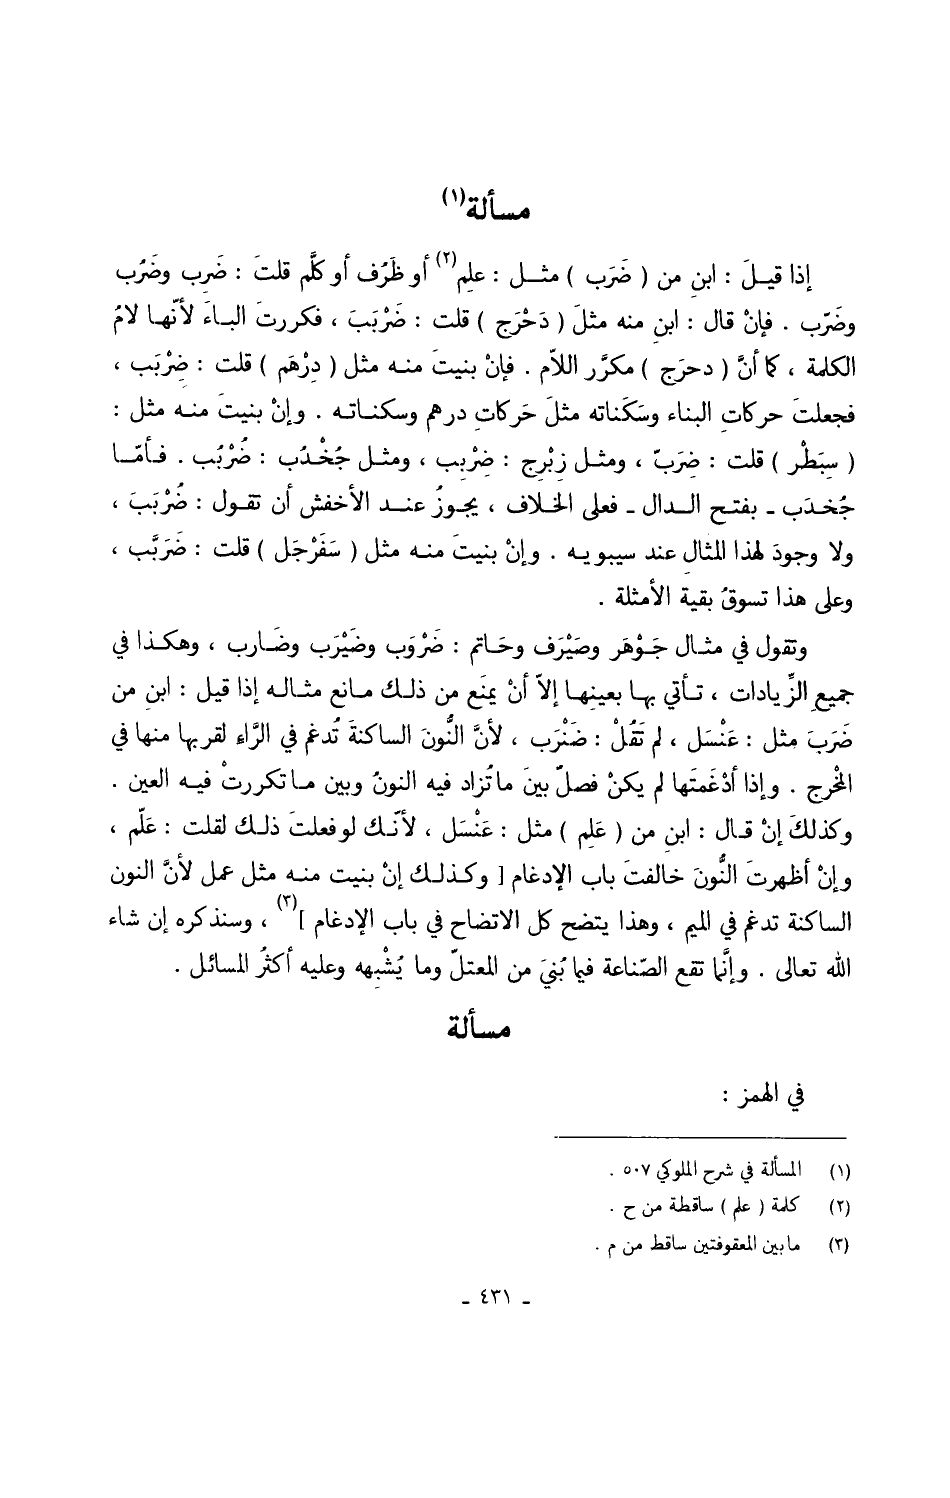 مسألة(١)
إذا قيلَ : ابنِ من ( ضَرَب ) مثل : علم(٢) أو ظَرُف أو كلَّم قلتَ : ضَرِب وضَرُب
وضَرّب . فإنْ قال : ابنِ منه مثلَ ( دَحْرَج ) قلت : ضَرْبَبَ ، فكررتَ الباءَ لأنّها لامُ
الكلمة ، كما أنَّ ( دحرَج ) مكرَّر اللاّم . فإنْ بنيتَ منه مثل ( دِرْهَم ) قلت : ضِرْبَب ،
فجعلتَ حركاتِ البناء وسَكَناته مثلَ حَركاتِ درهم وسكناته . وإنْ بنيتَ منه مثل :
( سِبَطْر ) قلت : ضِرَبّ ، ومثل زِبْرِج : ضِرْبِب ، ومثل جُخْدُب : ضُرْبُب . فأمّا
جُخدَب ـ بفتح الدال ـ فعلى الخلاف ، يجوزُ عند الأخفش أن تقول : ضُرْبَبَ ،
ولا وجودَ لهذا المثال عند سيبويه . وإنْ بنيتَ منه مثل ( سَفَرْجَل ) قلت : ضَرَبَّب ،
وعلى هذا تسوقُ بقية الأمثلة .
وتقول في مثال جَوْهَر وصَيْرَف وحَاتم : ضَرْوَب وضَيْرَب وضَارب ، وهكذا في
جميعِ الزِّيادات ، تأتي بها بعينها إلاّ أنْ يمنَع من ذلك مانع مثاله إذا قيل : ابنِ من
ضَرَبَ مثل : عَنْسَل ، لم تَقُلْ : ضَنْرَب ، لأنَّ النُّونَ الساكنةَ تُدغم في الرَّاء لقربها منها في
المخرج . وإذا أدْغَمتَها لم يكنْ فصلٌ بينَ ماتُزاد فيه النونُ وبين ماتكررتْ فيه العين .
وكذلكَ إنْ قال : ابنِ من ( عَلِم ) مثل : عَنْسَل ، لأنّك لوفعلتَ ذلك لقلت : عَلّم ،
وإنْ أظهرتَ النُّونَ خالفتَ باب الإدغام [ وكذلك إنْ بنيت منه مثل عمل لأنَّ النون
الساكنة تدغم في الميم ، وهذا يتضح كل الاتضاح في باب الإدغام ](٣) ، وسنذكره إن شاء
الله تعالى . وإنَّما تقع الصّناعة فيما بُنيَ من المعتلّ وما يُشْبهه وعليه أكثرُ المسائل .
مسألة
في الهمز :
(١) المسألة في شرح الملوكي ٥٠٧ .
(٢) كلمة ( علم ) ساقطة من ح .
(٣) مابين المعقوفتين ساقط من م .
ـ ٤٣١ ـ